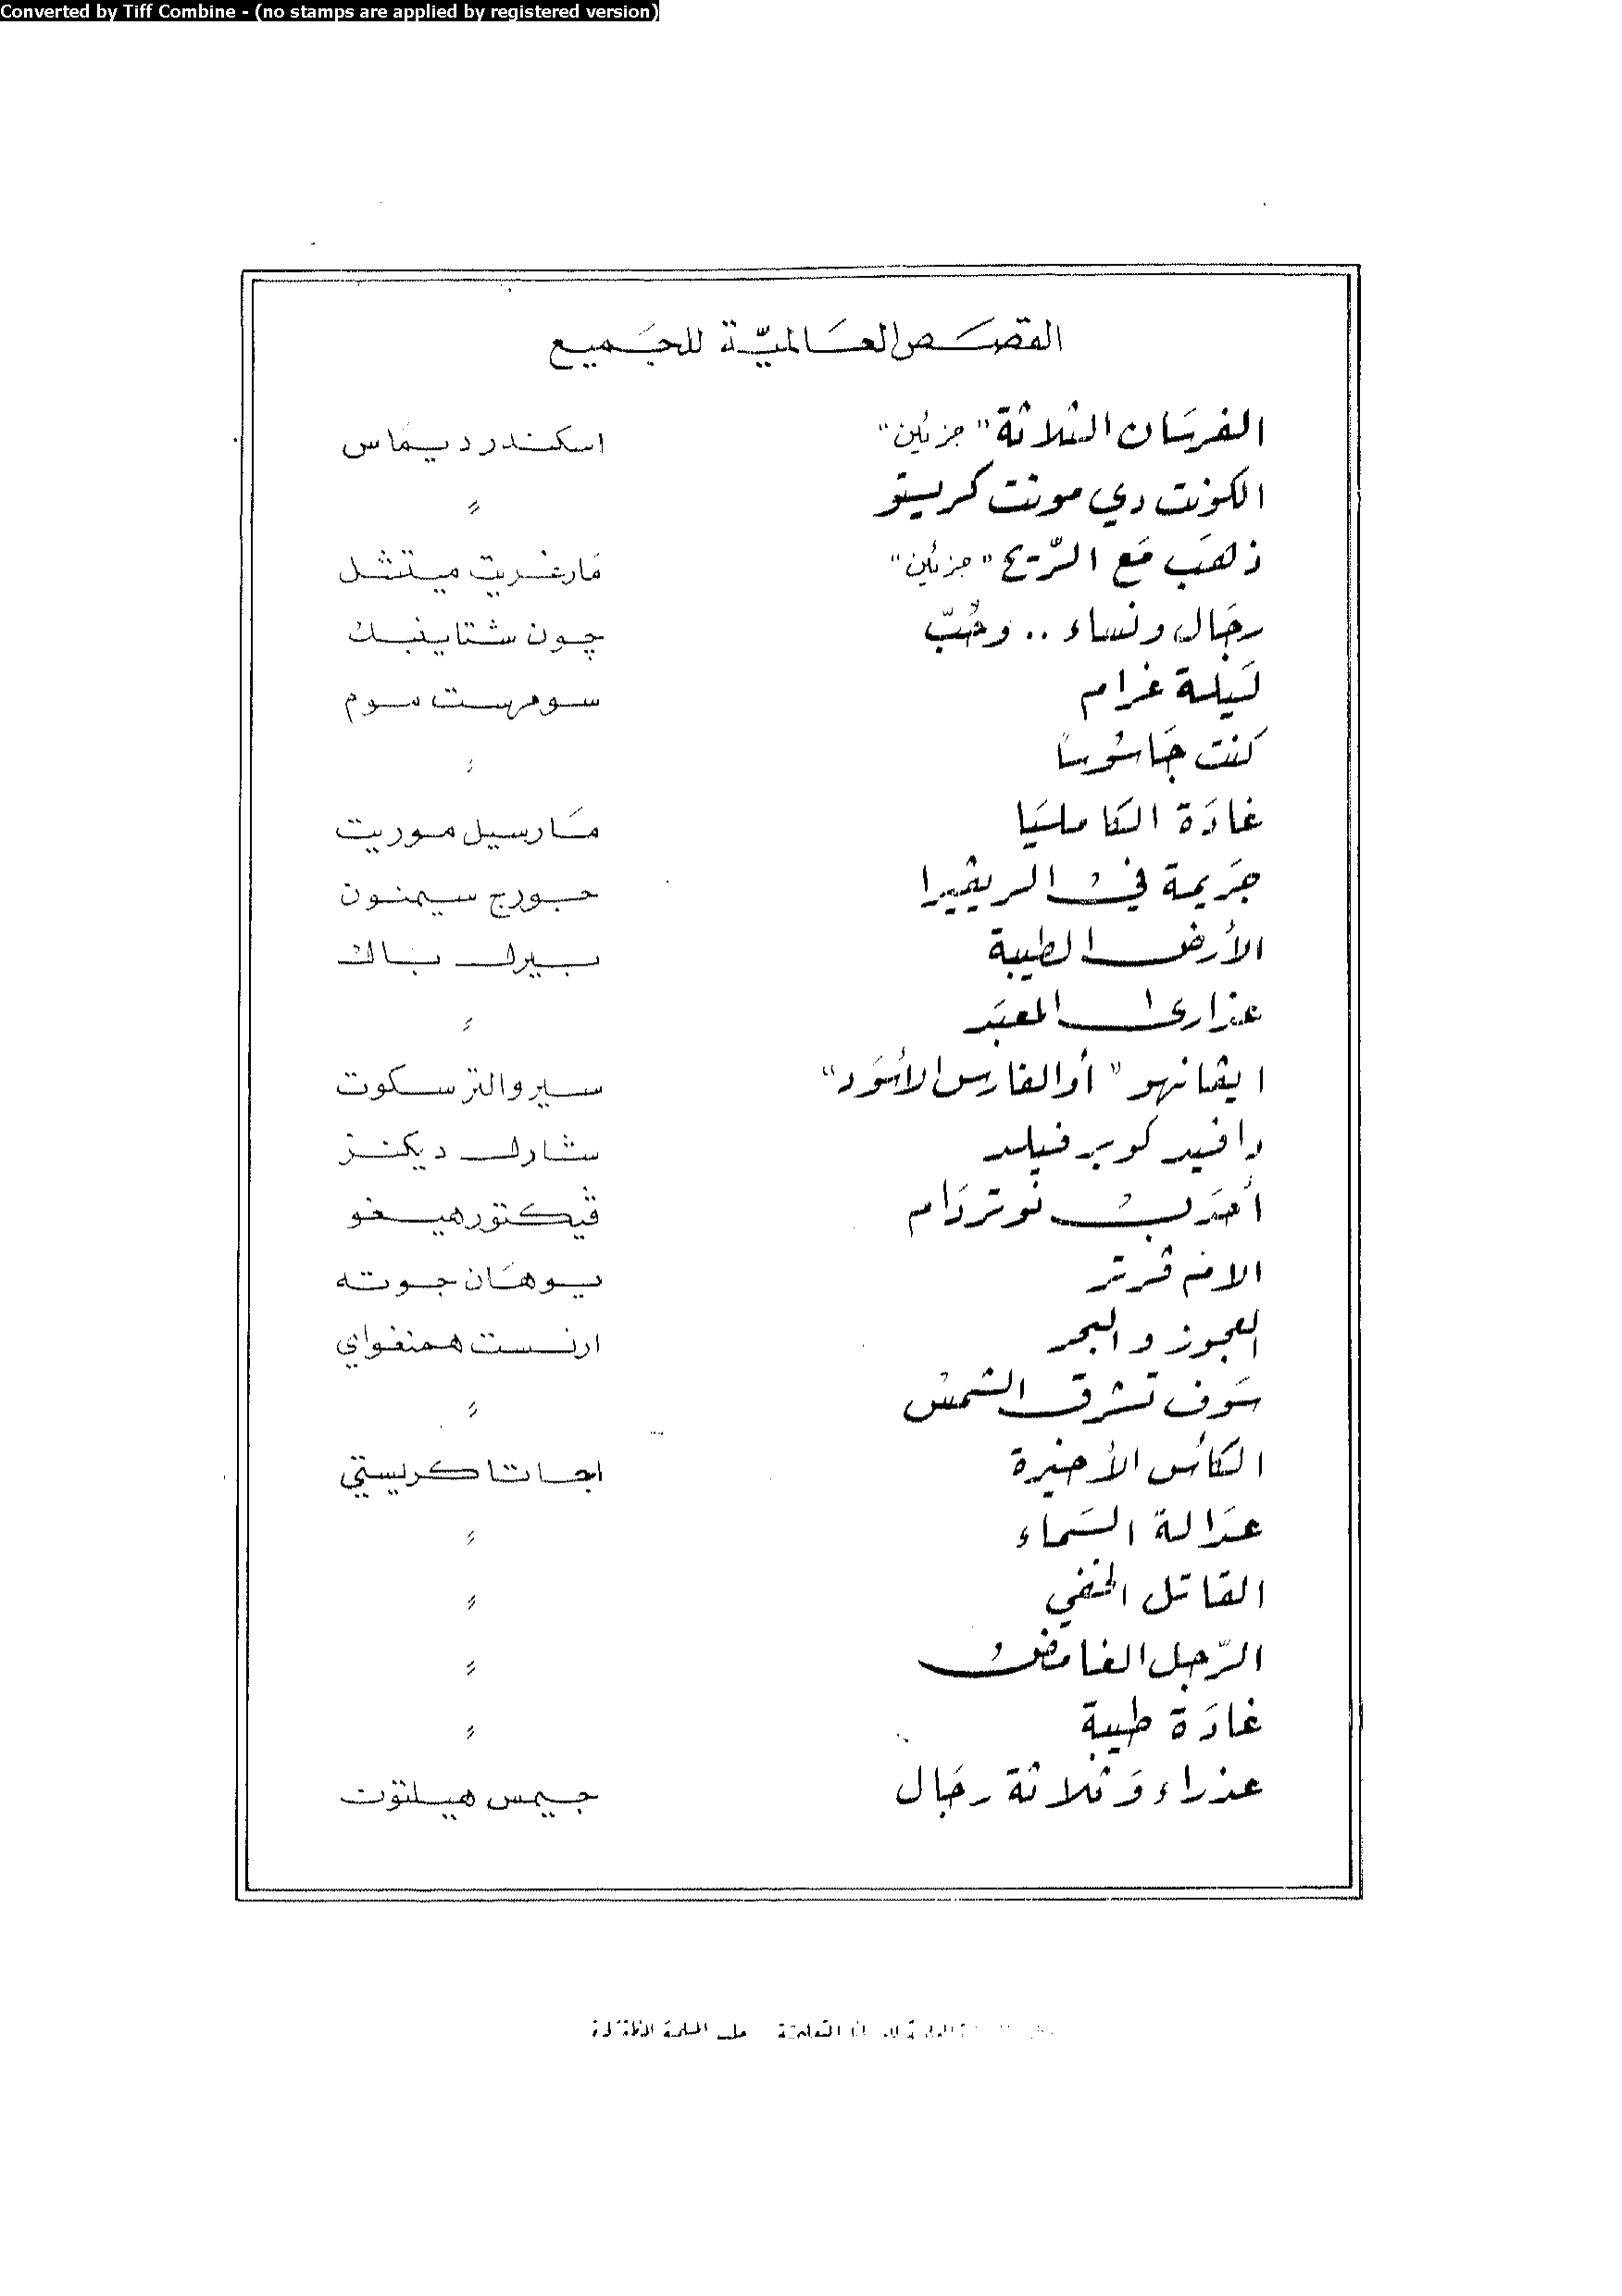 Converted by Tiff Combine - (no stamps are applied by registered version)
القصَص العَالميّة للجَميع
الفرسَان الثلاثة "جزئين" اسكندر ديمَاس
الكونت دي مونت كريستو "
ذهَب مَع الرّيح "جزئين" مَارغريت ميتشل
رجَال ونساء .. وحُبّ چون شتاينبك
لَيلة غرام سومرست موم
كنت جَاسُوسًا "
غادَة الكاملَيا مَارسيل موريت
جَريمة في الريڤيرا جورج سيمنون
الأرض الطيبة بيرل باك
عذارى المعبَد "
ايڤانهو "أو الفارس الأسوَد" سير والتر سكوت
دافيد كوبرفيلد شارل ديكنز
أحدَب نوتردَام ڤيكتور هيغو
الام ڤرتر يوهَان جوته
العجوز والبحر ارنست همنغواي
سَوف تشرق الشمس "
الكأس الأخيرة اجاتا كريستي
عدَالة السَماء "
القاتل الخفي "
الرّجل الغامض "
غادَة طيبة "
عذراء وَثلاثة رجَال جيمس هيلتون